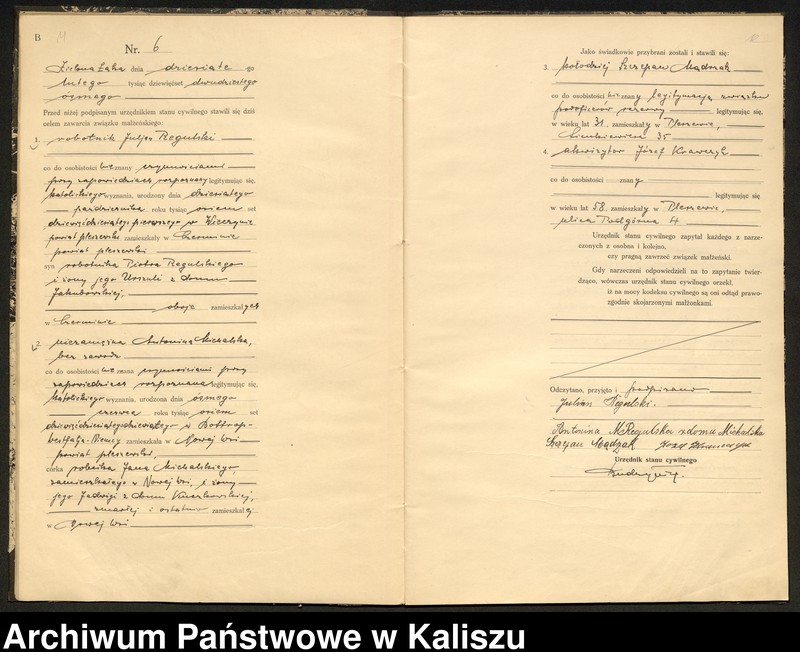 B
Nr. 6
Zielona Łąka dnia dziesiąte go
lutego tysiąc dziewięćset dwudziestego
ósmego
Przed niżej podpisanym urzędnikiem stanu cywilnego stawili się dziś
celem zawarcia związku małżeńskiego:
1. robotnik Juljan Regulski
co do osobistości znany czynnościami
przy zapowiedziach rozpoznany legitymując się,
katolickiego wyznania, urodzony dnia dziesiątego
października roku tysiąc osiem set
dziewięćdziesiątego pierwszego w
powiat pleszewski zamieszkały w Czerminie
powiat pleszewski
syn robotnika Piotra Regulskiego
i żony jego Urszuli z domu
Jakubowskiej,
oboje zamieszkałych
w Czerminie
2. niezamężna Antonina Michalska,
bez zawodu
co do osobistości znana czynnościami przy
zapowiedziach rozpoznana legitymując się,
katolickiego wyznania, urodzona dnia ósmego
czerwca roku tysiąc osiem set
dziewięćdziesiątegodziewiątego w Bottrop-
Westfalja-Niemcy zamieszkała w Nowej Wsi
powiat pleszewski,
córka robotnika Jana Michalskiego,
zamieszkałego w Nowej Wsi, i żony
jego Jadwigi z domu
zmarłej i ostatnio zamieszkałej
w Nowej Wsi
Jako świadkowie przybrani zostali i stawili się:
3. kołodziej Szczepan Mądrzak
co do osobistości znany legitymacją związku
podoficerów rezerwy legitymując się,
w wieku lat 31, zamieszkały w Pleszewie,
Sienkiewicza 35
4. akwizytor Józef Krawczyk
co do osobistości znany
legitymując się
w wieku lat 58, zamieszkały w Pleszewie,
ulica Podgórna 4.
Urzędnik stanu cywilnego zapytał każdego z narze-
czonych z osobna i kolejno,
czy pragną zawrzeć związek małżeński.
Gdy narzeczeni odpowiedzieli na to zapytanie twier-
dząco, wówczas urzędnik stanu cywilnego orzekł,
iż na mocy kodeksu cywilnego są oni odtąd prawo-
zgodnie skojarzonymi małżonkami.
Odczytano, przyjęto i podpisano
Julian Regulski.
Antonina Regulska z domu Michalska
Szczepan Mądrzak Józef Krawczyk
Urzędnik stanu cywilnego
Archiwum Państwowe w Kaliszu